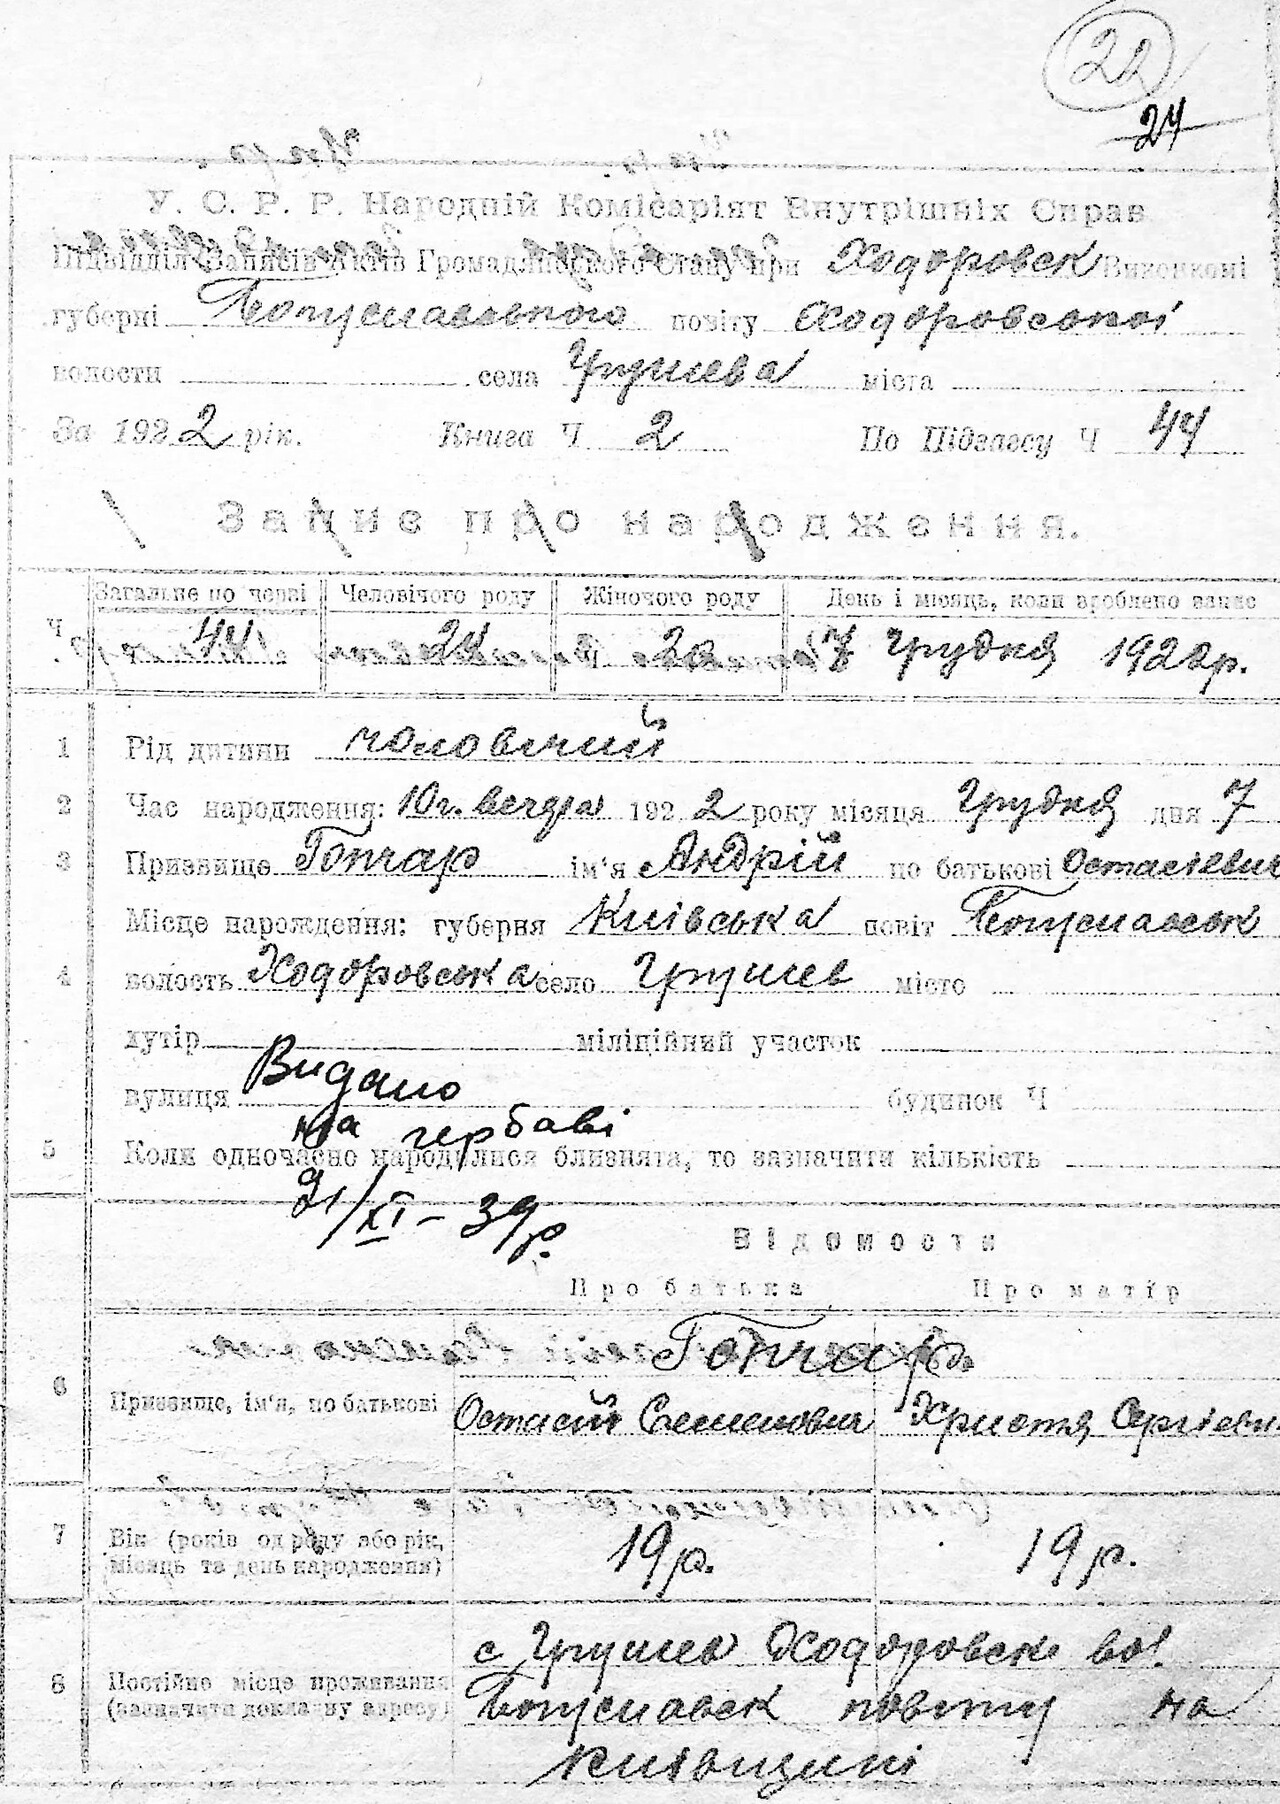 22
24
У. С. Р. Р. Народній Комісаріят Внутрішніх Справ
Підвідділ Записів Актів Громадянського Стану при Ходоровск Виконкомі
губерні Богуславського повіту Ходоровської
волости села Грушева міста
За 1922 рік. Книга Ч 2 По Підгаєсу Ч 44
Запис про народження.
Загальне по черзі Человічого роду Жіночого роду День і місяць, коли зроблено запис
Ч. 44 24 20 7 Грудня 1922р.
1 Рід дитини чоловічий
2 Час народження: 10г. вечера 1922 року місяця Грудня дня 7
3 Призвище Гончар ім'я Андрій по батькові Остасієвич
Місце народження: губерня Київська повіт Богуславськ
4 волость Ходоровська село Грушев місто
хутір міліційний участок
вулиця Видано будинок Ч
на гербаві
5 Коли одночасно народилися близнята, то зазначити кількість
21/XI – 39р.
Відомости
Про батька Про матір
Гончар
6 Призвище, ім'я, по батькові Остасій Семенович Христя Сергіевн
7 Вік (років од роду або рік, місяць та день народження) 19р. 19р.
с Грушев Ходоровск вол.
8 Постійне місце проживання (зазначити докладну адресу) Богуславск повіту на
Київщині